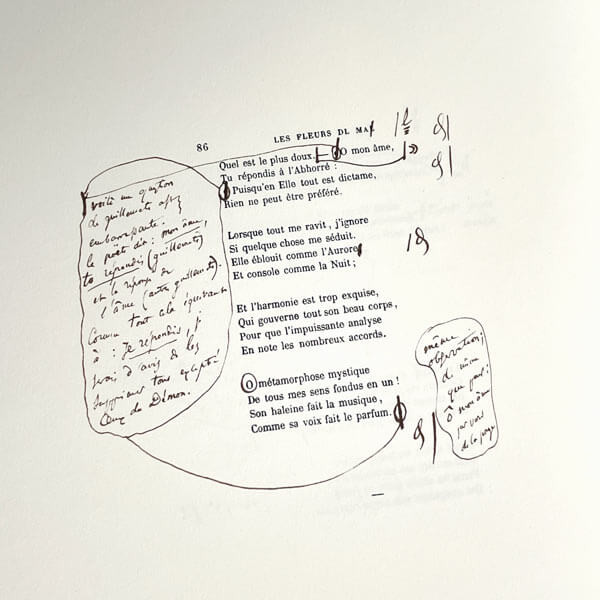 86 LES FLEURS DL MAL
Quel est le plus doux. — O mon âme,
Tu répondis à l'Abhorré :
Puisqu'en Elle tout est dictame,
Rien ne peut être préféré.
Lorsque tout me ravit, j'ignore
Si quelque chose me séduit.
Elle éblouit comme l'Aurore
Et console comme la Nuit ;
Et l'harmonie est trop exquise,
Qui gouverne tout son beau corps,
Pour que l'impuissante analyse
En note les nombreux accords.
O métamorphose mystique
De tous mes sens fondus en un !
Son haleine fait la musique,
Comme sa voix fait le parfum.
voilà un question
de guillemets
embarrassante.
le poëte dit : mon âme,
tu répondis (guillemets)
et la réponse de
l'âme (autre guillemets).
Comme tout cela équivaut
à : Je répondis, je
serais d'avis de les
supprimer tous excepté
ceux du Démon.
même
observation,
de même
que pour :
Ô mon âme
de la page